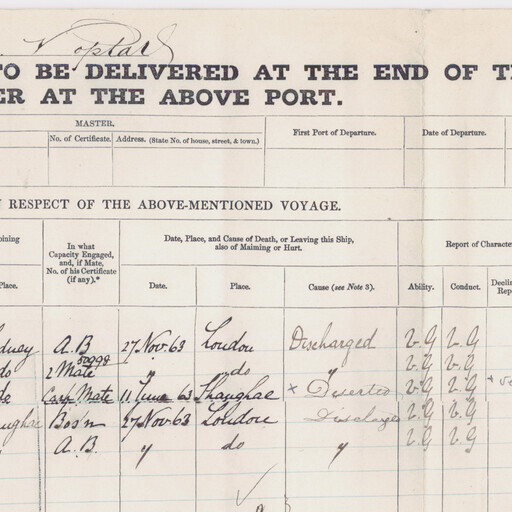 TO BE DELIVERED AT THE END OF T
ER AT THE ABOVE PORT.
MASTER.
No. of Certificate. Address. (State No. of house, street, & town.)
First Port of Departure. Date of Departure.
RESPECT OF THE ABOVE-MENTIONED VOYAGE.
oining
Place.
In what
Capacity Engaged,
and, if Mate,
No. of his Certificate
(if any).*
Date, Place, and Cause of Death, or Leaving this Ship,
also of Maiming or Hurt.
Date. Place. Cause (see Note 3).
Report of Characte
Ability. Conduct. Declin
Repo
dney A.B 27 Nov. 63 London Discharged V.G V.G
do 2 Mate " do " V.G V.G
do Carp Mate 11 June 63 Shanghae x Deserted V.G V.G
anghae Bos'n 27 Nov. 63 London Discharged V.G V.G
A.B. " do " V.G V.G